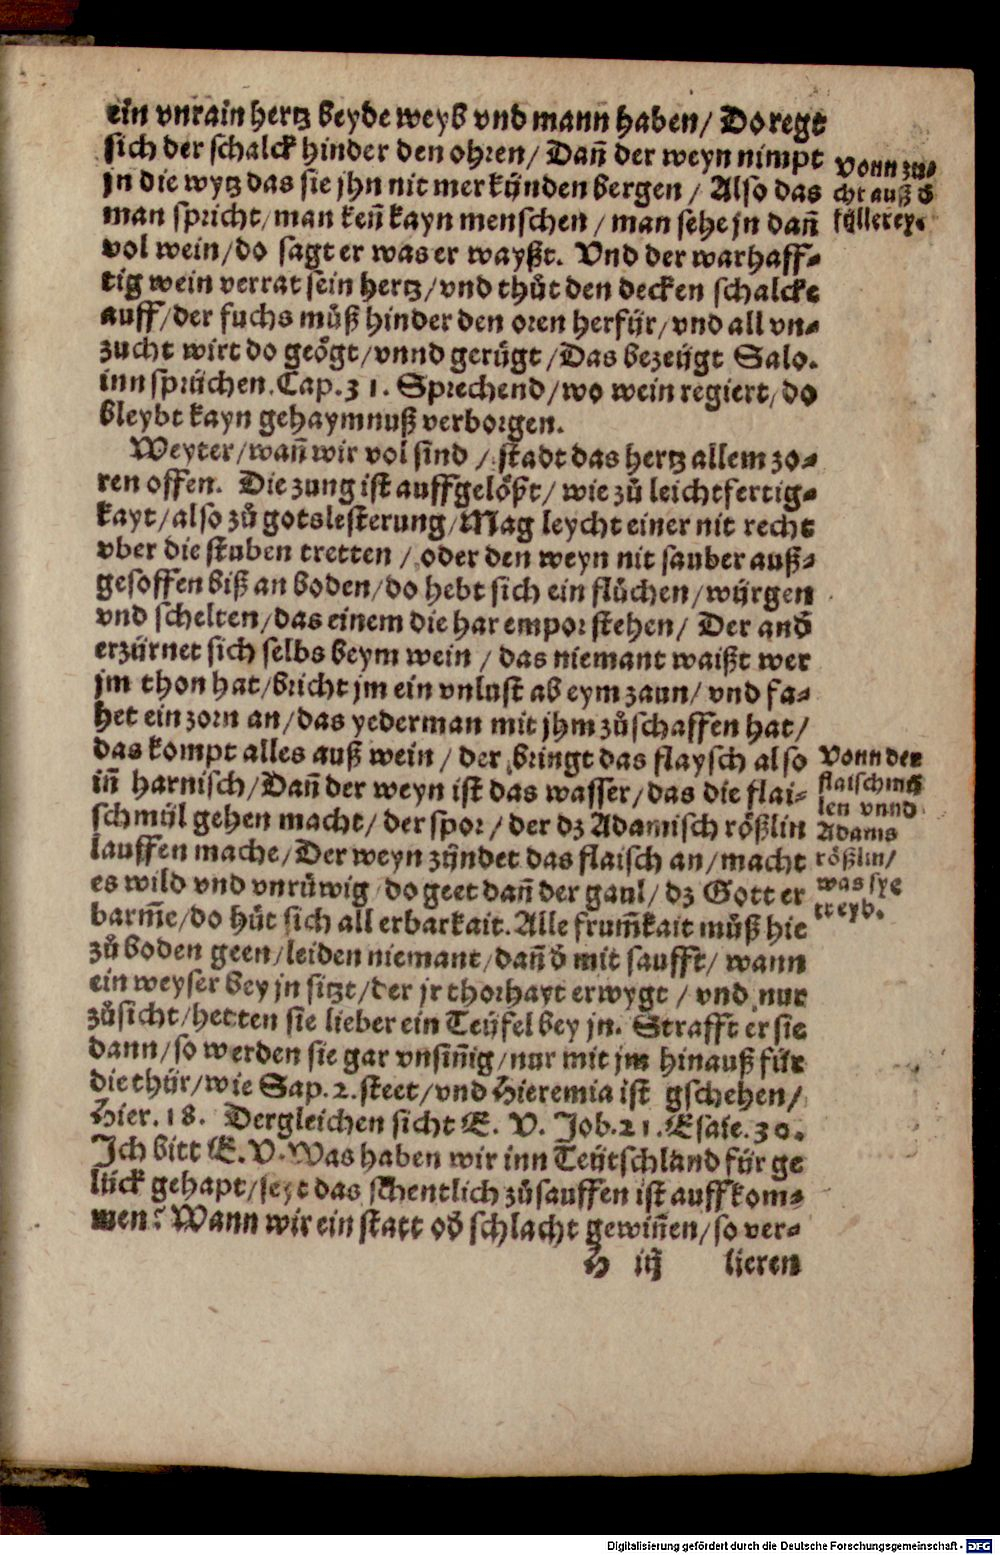 ein vnrain hertz beyde weyb vnd mann haben/ Do regt
sich der schalck hinder den ohren/ Dañ der weyn nimpt
jn die wytz das sie jhn nit mer kynden bergen / Also das
man spricht/man keñ kayn menschen / man sehe jn dañ
vol wein/do sagt er was er wayßt. Vnd der warhaff-
tig wein verrat sein hertz/vnd thůt den decken schalcke
auff/der fuchs můß hinder den oren herfür/vnd all vn-
zucht wirt do geögt/vnnd gerügt/Das bezeügt Salo.
inn sprüchen. Cap. 31. Sprechend/wo wein regiert/do
bleybt kayn gehaymnuß verborgen.
Vonn zu-
cht auß ď
füllerey.
Weyter/wañ wir vol sind / stadt das hertz allem zo-
ren offen. Die zung ist auffgelößt/ wie zů leichtfertig-
kayt/also zů gotslesterung/Mag leycht einer nit recht
vber die stuben tretten / oder den weyn nit sauber auß-
gesoffen biß an boden/do hebt sich ein flůchen/würgen
vnd schelten/das einem die har empor stehen/ Der anď
erzürnet sich selbs beym wein / das niemant waißt wer
jm thon hat/bricht jm ein vnlust ab eym zaun/ vnd fa-
het ein zorn an/das yederman mit jhm zůschaffen hat/
das kompt alles auß wein / der bringt das flaysch also
iñ harnisch/Dañ der weyn ist das wasser/das die flai-
schmül gehen macht/ der spor/ der dz Adamisch rößlin
lauffen mache/Der weyn zündet das flaisch an/macht
es wild vnd vnrüwig do geet dañ der gaul/ dz Gott er
barm̃e/do hůt sich all erbarkait. Alle frum̃kait můß hie
zů boden geen/leiden niemant/dañ ď mit saufft/ wann
ein weyser bey jn sitzt/der jr thorhayt erwygt / vnd nur
zůsicht/hetten sie lieber ein Teüfel bey jn. Strafft er sie
dann/so werden sie gar vnsiñig/nur mit jm hinauß für
die thür/wie Sap. 2. steet/vnd Hieremia ist gschehen/
Hier. 18. Dergleichen sicht E. V. Job. 21. Esaie. 30.
Ich bitt E. V. Was haben wir inn Teütschland für ge
lück gehapt/seyt das schentlich zůsauffen ist auffkom-
men? Wann wir ein statt oď schlacht gewiñen/so ver-
Vonn der
flaischmü
len vnnd
Adams
rößlin/
was sye
treyb.
H iij lieren
Digitalisierung gefördert durch die Deutsche Forschungsgemeinschaft - DFG